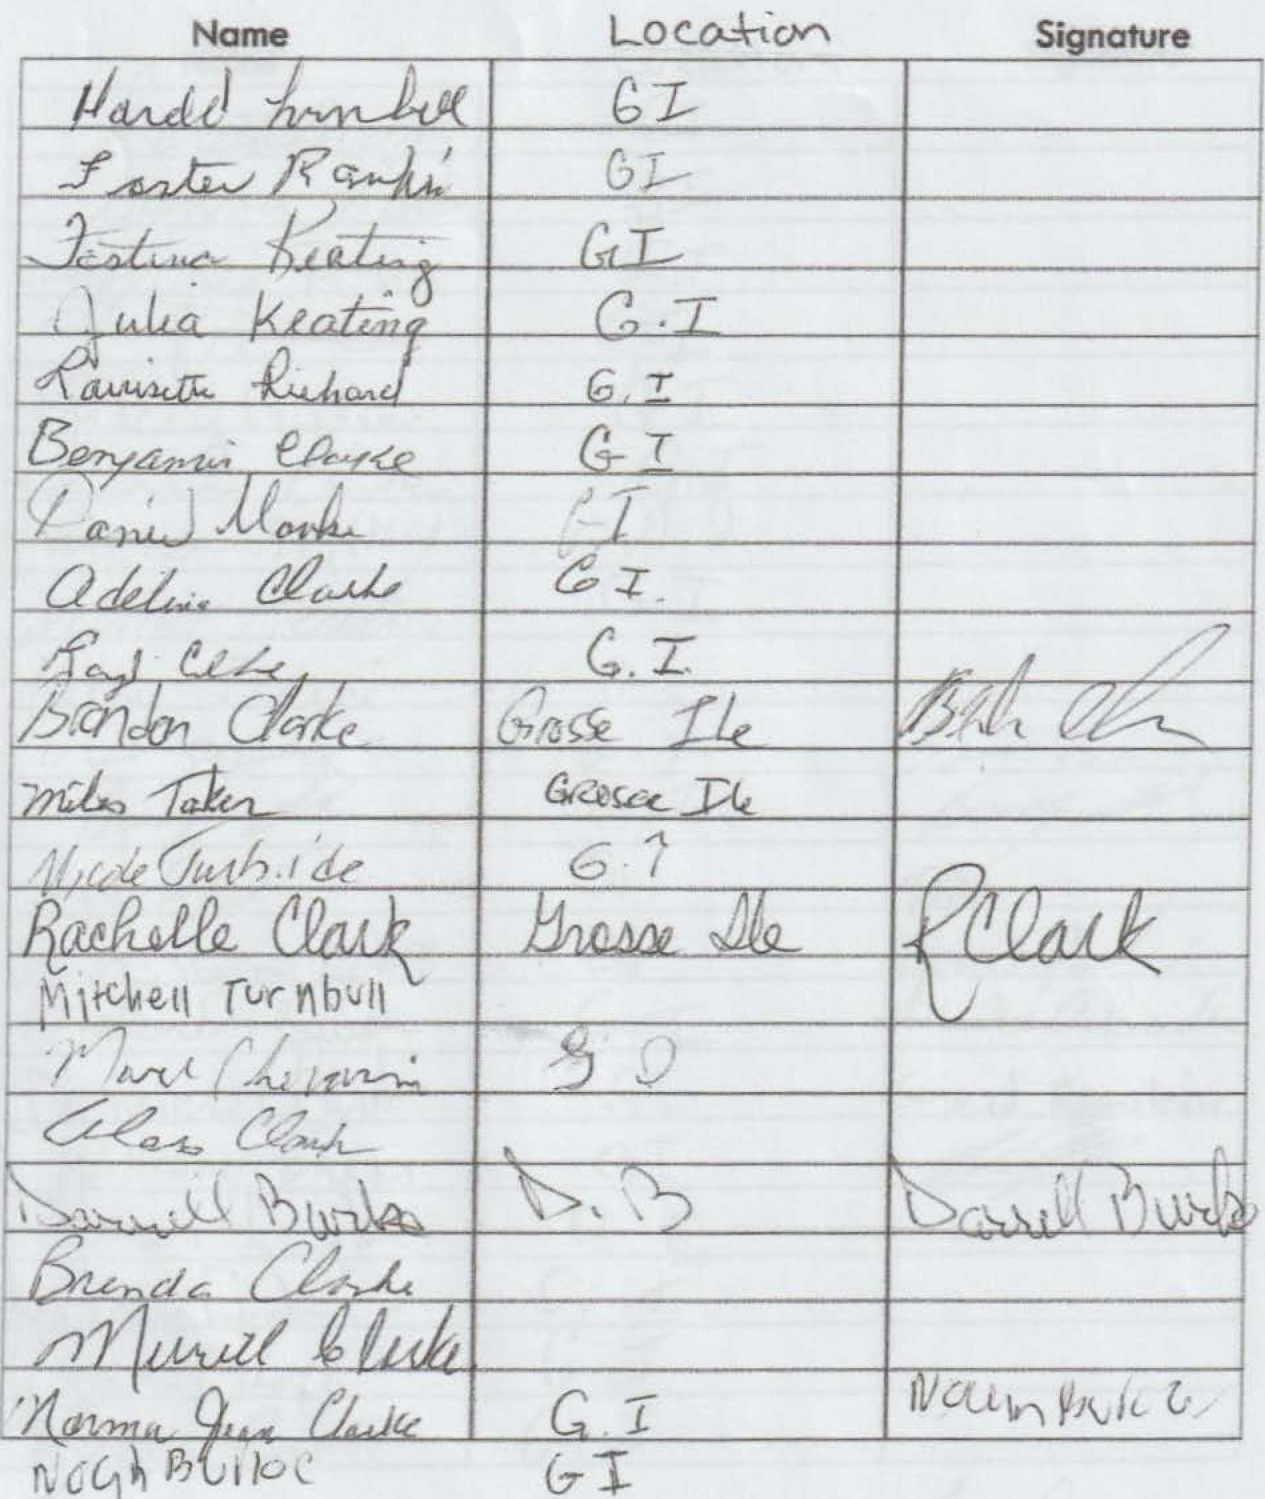 Name Location Signature
Harold Turnbull GI
Foster Rankin GI
Festina Keating GI
Julia Keating G.I
Richard G.I
Benjamin Clarke GI
I
Adeline Clarke GI.
G.I.
Brandon Clarke Grosse Ile
Miles Taker Grosse Ile
Nicole Turbide G.I
Rachelle Clark Grosse Ile R Clark
Mitchell Turnbull
G I
Clark
Darrell Burke D.B Darrell Burke
Brenda Clarke
Murrell Clarke
Norma Jean Clarke G.I
Noah GI